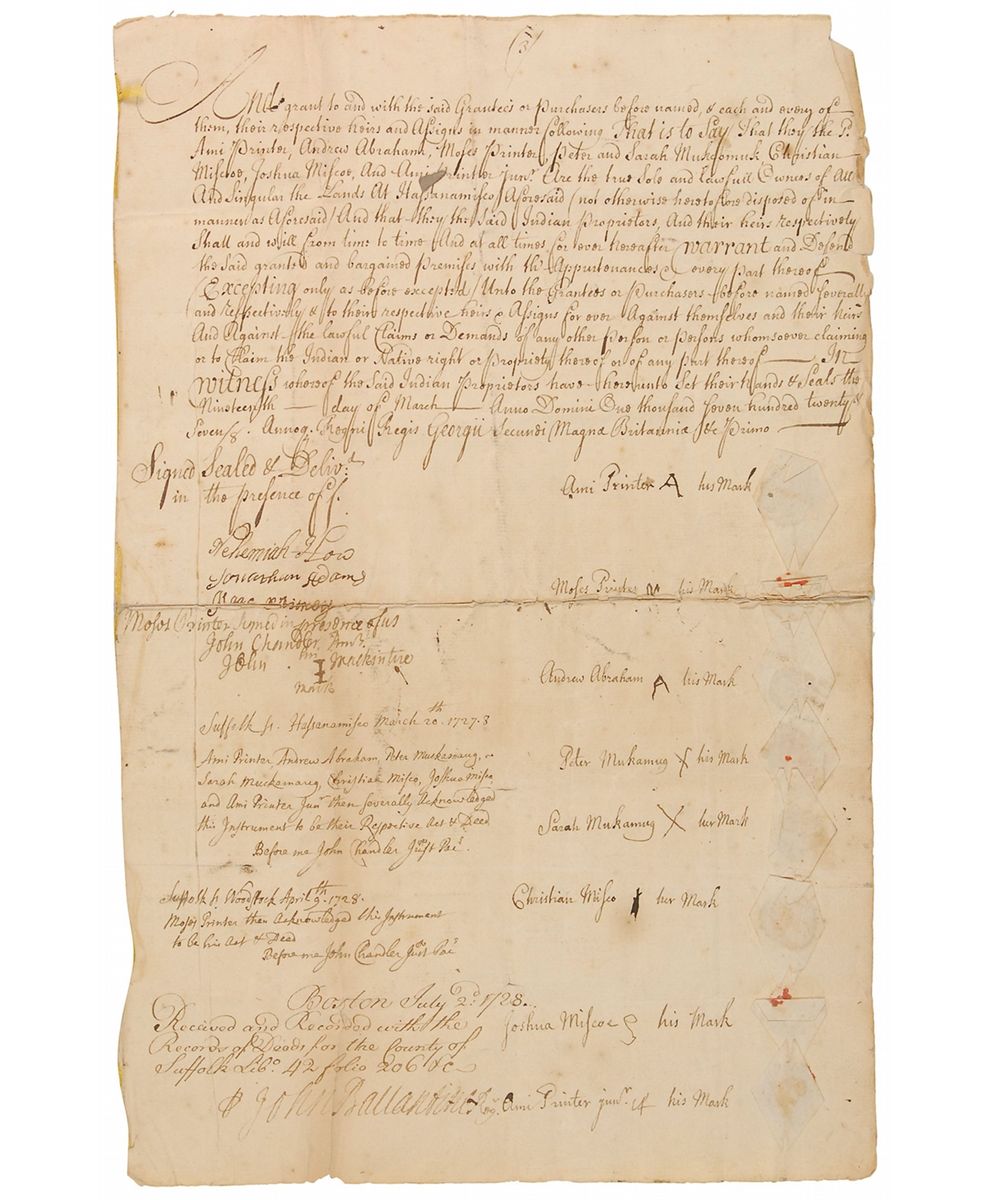 (3)
And grant to and with the said Grantees or Purchasers before named, & each and every of
them, their respective heirs and Assigns in manner following That is to Say That they the Sd.
Ami Printer, Andrew Abraham, Moses Printer, Peter and Sarah Mukgomuk, Christian
Miscoe, Joshua Miscoe, And Ami Printer Junr. Are the true Sole and lawfull Owners of All
And Singular the Lands At Hassanamisco Aforesaid (not otherwise heretofore disposed of in
manner as Aforesaid) And that they the Said Indian Proprietors, And their heirs respectively
Shall and will from time to time And at all times for ever hereafter warrant and Defend
the Said granted and bargained Premises with the Appurtenances & every part thereof
(Excepting only as before excepted) Unto the Grantees or Purchasers before named Severally
and respectively & to their respective heirs & Assigns for ever Against themselves and their heirs
And Against the lawful Claims or Demands of any other Person or Persons whomsoever claiming
or to Claim the Indian or Native right or Propriety thereof or of any part thereof In
witness whereof the Said Indian Proprietors have hereunto Set their Hands & Seals the
Nineteenth day of March Anno Domini One thousand Seven hundred twenty &
Seven/8. Annoq. Regni Regis Georgii Secundi Magna Britannia &c Primo
Signed Sealed & Delivd.
in the presence of
Ami Printer A his Mark
Nehemiah How
Jonathan Adams
Isaac
Moses Printer his Mark
Moses Printer Signed in presence of us
John Chandler Junr.
John his I Mackintire
mark
Andrew Abraham A his Mark
Suffolk ss. Hassanamisco March 20th. 1727.8
Ami Printer Andrew Abraham, Peter Muckamaug,
Sarah Muckamaug, Christian Misco, Joshua Misco
and Ami Printer Junr then Severally Acknowledged
this Instrument to be their Respective Act & Deed
Before me John Chandler Just Pac.
Peter Mukamug X his Mark
Sarah Mukamug X her Mark
Suffolk ss Woodstock April 9th. 1728.
Moses Printer then Acknowledged this Instrument
to be his Act & Deed
Before me John Chandler Just Pac
Christian Misco her Mark
Boston July 2d. 1728.
Received and Recorded with the
Records of Deeds for the County of
Suffolk Libo. 42 folio 206 &c
John Ballantine Regr.
Joshua Miscoe his Mark
Ami Printer junr. his Mark